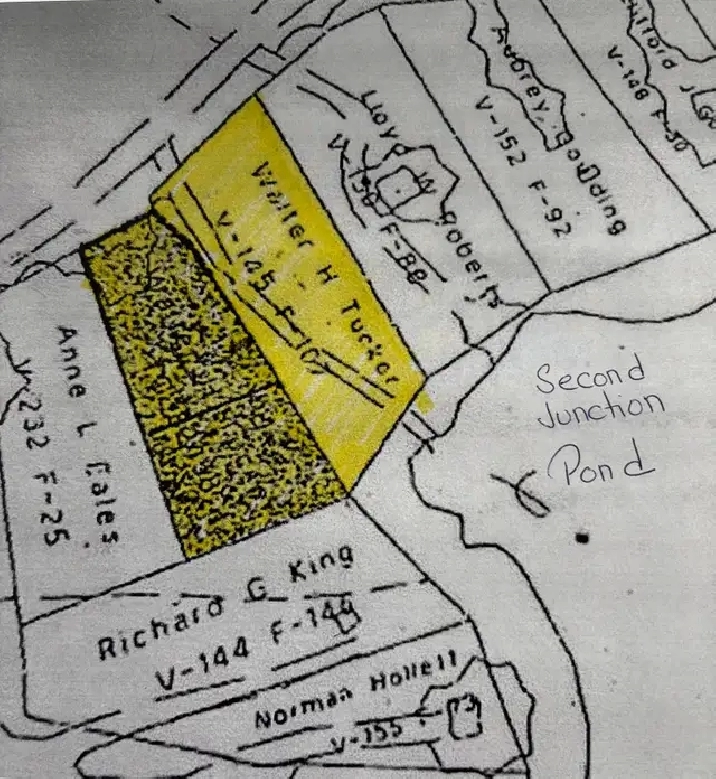 Clifford
V-148 F-50
Aubrey Goulding
V-152 F-92
Lloyd W Roberts
V-150 F-88
Walter H Tucker
V-145 F-107
Second
Junction
Pond
Anne L Eales
V-232 F-25
Richard G King
V-144 F-149
Norman Hollett
V-155